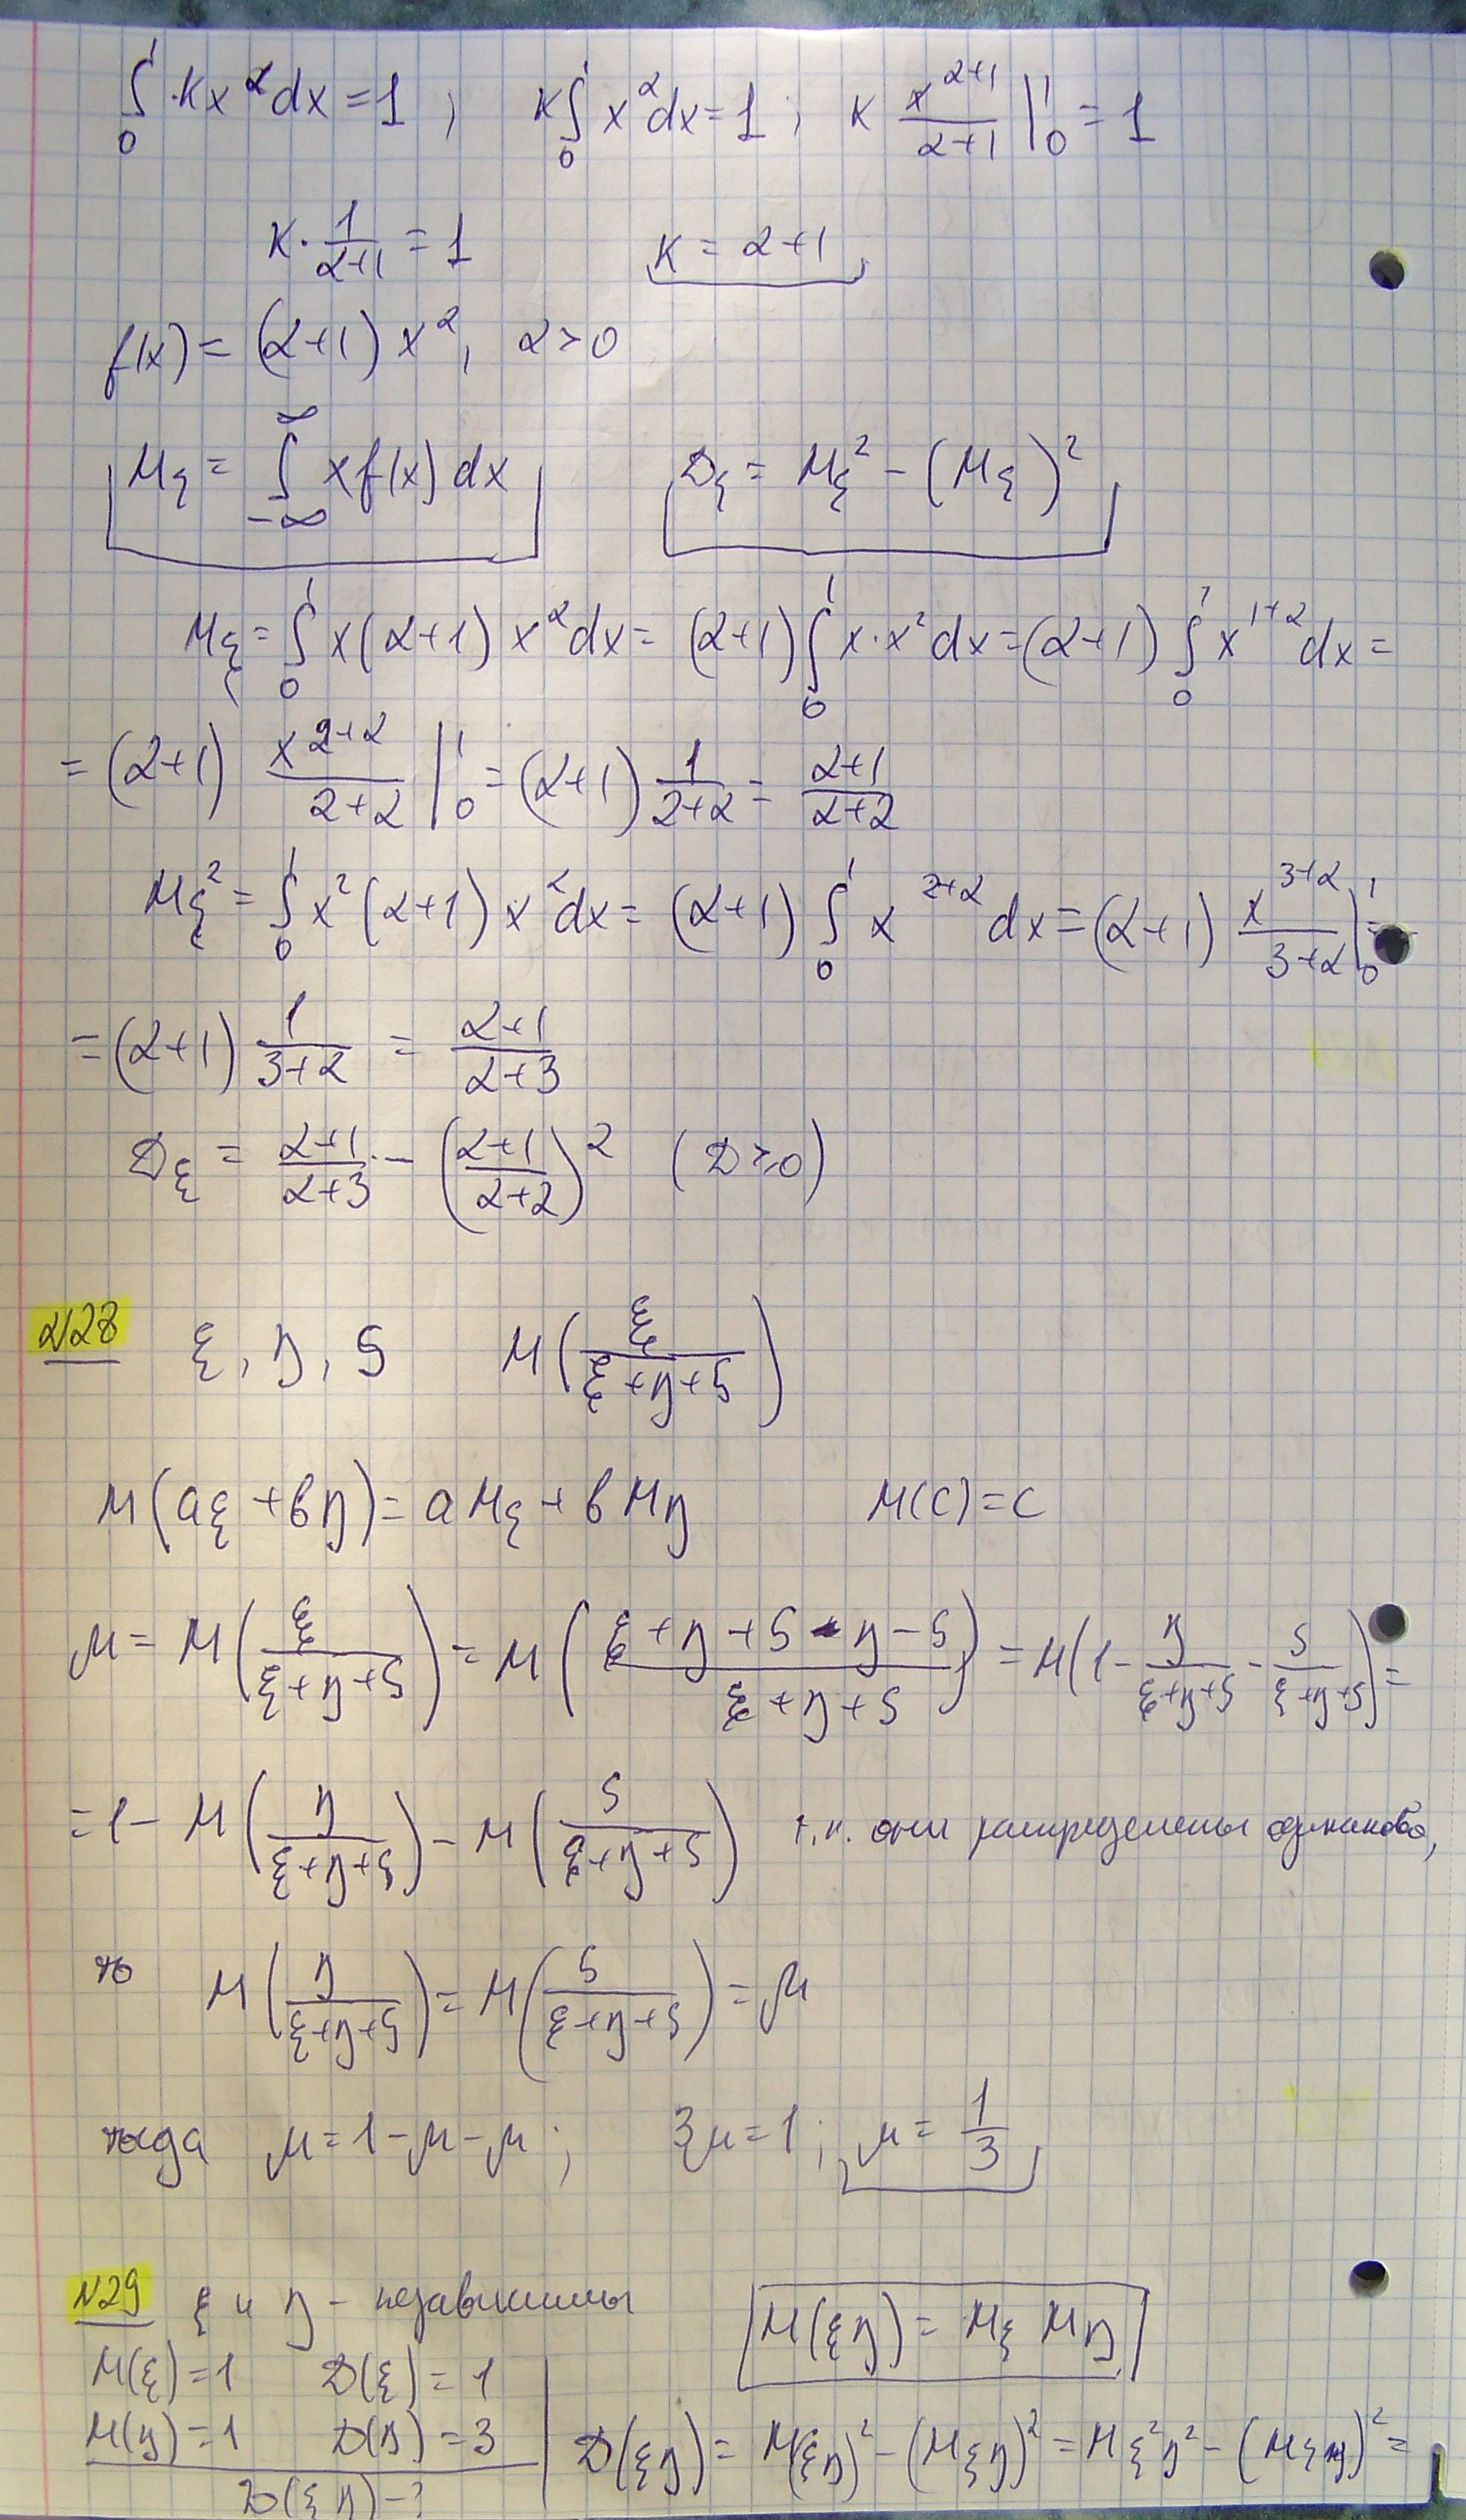 ∫₀¹ ·Kx^α dx = 1 ; K∫₀¹ x^α dx = 1 ; K x^(α+1)/(α+1) |₀¹ = 1
K · 1/(α+1) = 1 K = α+1
f(x) = (α+1) x^α, α > 0
Mξ = ∫_(-∞)^∞ x f(x) dx Dξ = Mξ² − (Mξ)²
Mξ = ∫₀¹ x(α+1) x^α dx = (α+1) ∫₀¹ x·x^α dx = (α+1) ∫₀¹ x^(1+α) dx =
= (α+1) x^(2+α)/(2+α) |₀¹ = (α+1) 1/(2+α) = (α+1)/(α+2)
Mξ² = ∫₀¹ x²(α+1) x^α dx = (α+1) ∫₀¹ x^(2+α) dx = (α+1) x^(3+α)/(3+α) |₀¹ =
= (α+1) 1/(3+α) = (α+1)/(α+3)
Dξ = (α+1)/(α+3) − ((α+1)/(α+2))² (D ≥ 0)
№28 ξ, η, ζ M(ξ/(ξ+η+ζ))
M(aξ + bη) = aMξ + bMη M(C) = C
μ = M(ξ/(ξ+η+ζ)) = M((ξ+η+ζ−η−ζ)/(ξ+η+ζ)) = M(1 − η/(ξ+η+ζ) − ζ/(ξ+η+ζ)) =
= 1 − M(η/(ξ+η+ζ)) − M(ζ/(ξ+η+ζ)) т.к. они распределены одинаково,
то M(η/(ξ+η+ζ)) = M(ζ/(ξ+η+ζ)) = μ
тогда μ = 1 − μ − μ ; 3μ = 1 ; μ = 1/3
№29 ξ и η – независимы M(ξη) = Mξ Mη
M(ξ) = 1 D(ξ) = 1
M(η) = 1 D(η) = 3 D(ξη) = M(ξη)² − (Mξη)² = Mξ²η² − (Mξη)² =
D(ξη) – ?